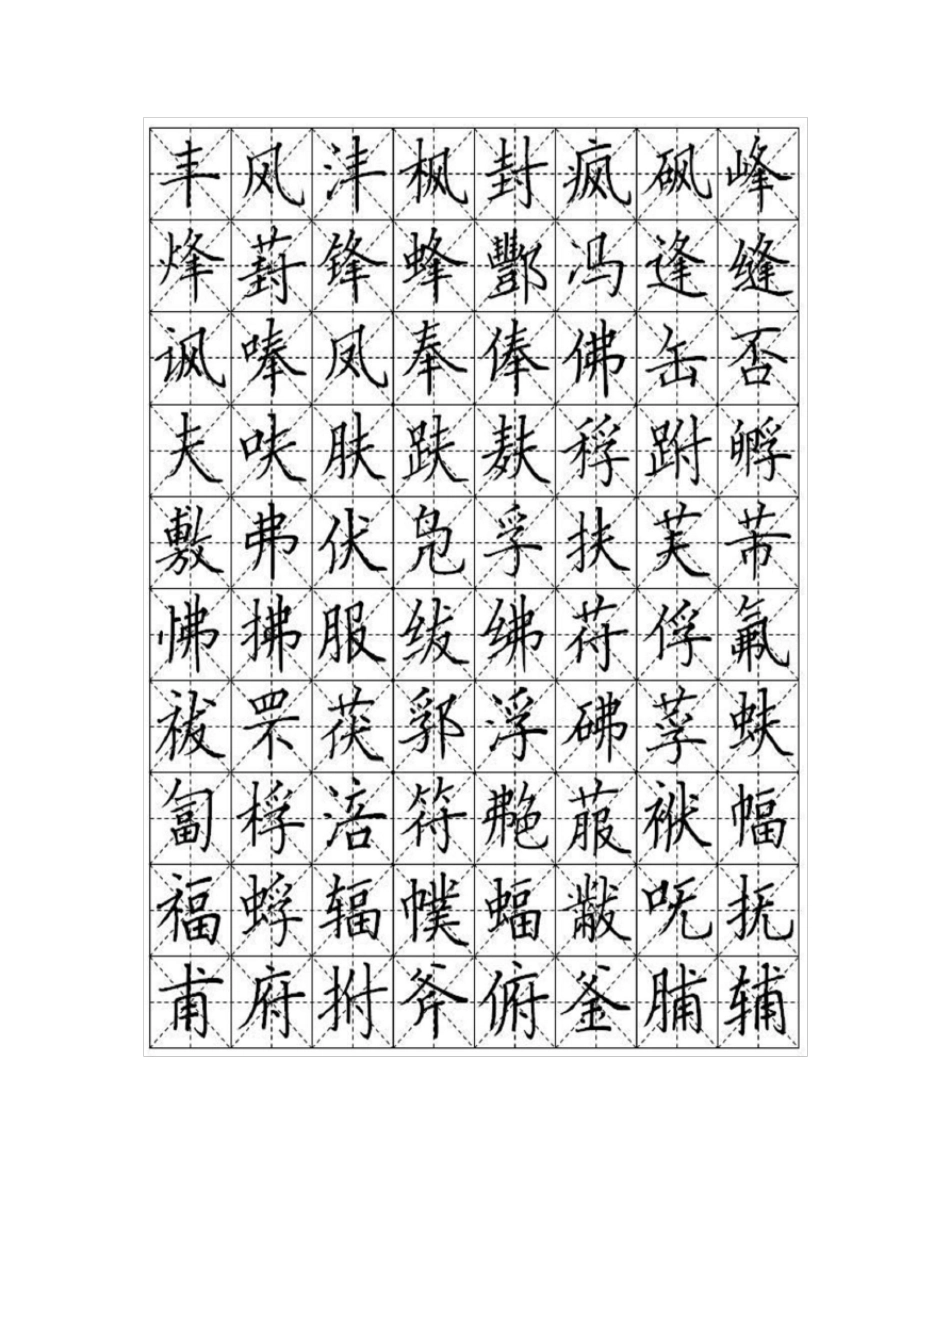 丰风沣枫封疯砜峰
烽葑锋蜂酆冯逢缝
讽唪凤奉俸佛缶否
夫呋肤趺麸稃跗孵
敷弗伏凫孚扶芙芾
怫拂服绂绋苻俘氟
祓罘茯郛浮砩莩蚨
匐桴涪符艴菔袱幅
福蜉辐幞蝠黻呒抚
甫府拊斧俯釜脯辅